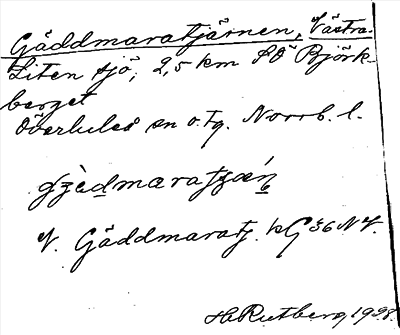 Gäddmaratjärnen, Västra.
Liten sjö, 2,5 km SO Björk-
berget
Överluleå sn o. tg. Norrb. l.
V. Gäddmaratj. kG 36 NV.
H. Rutberg, 1938.